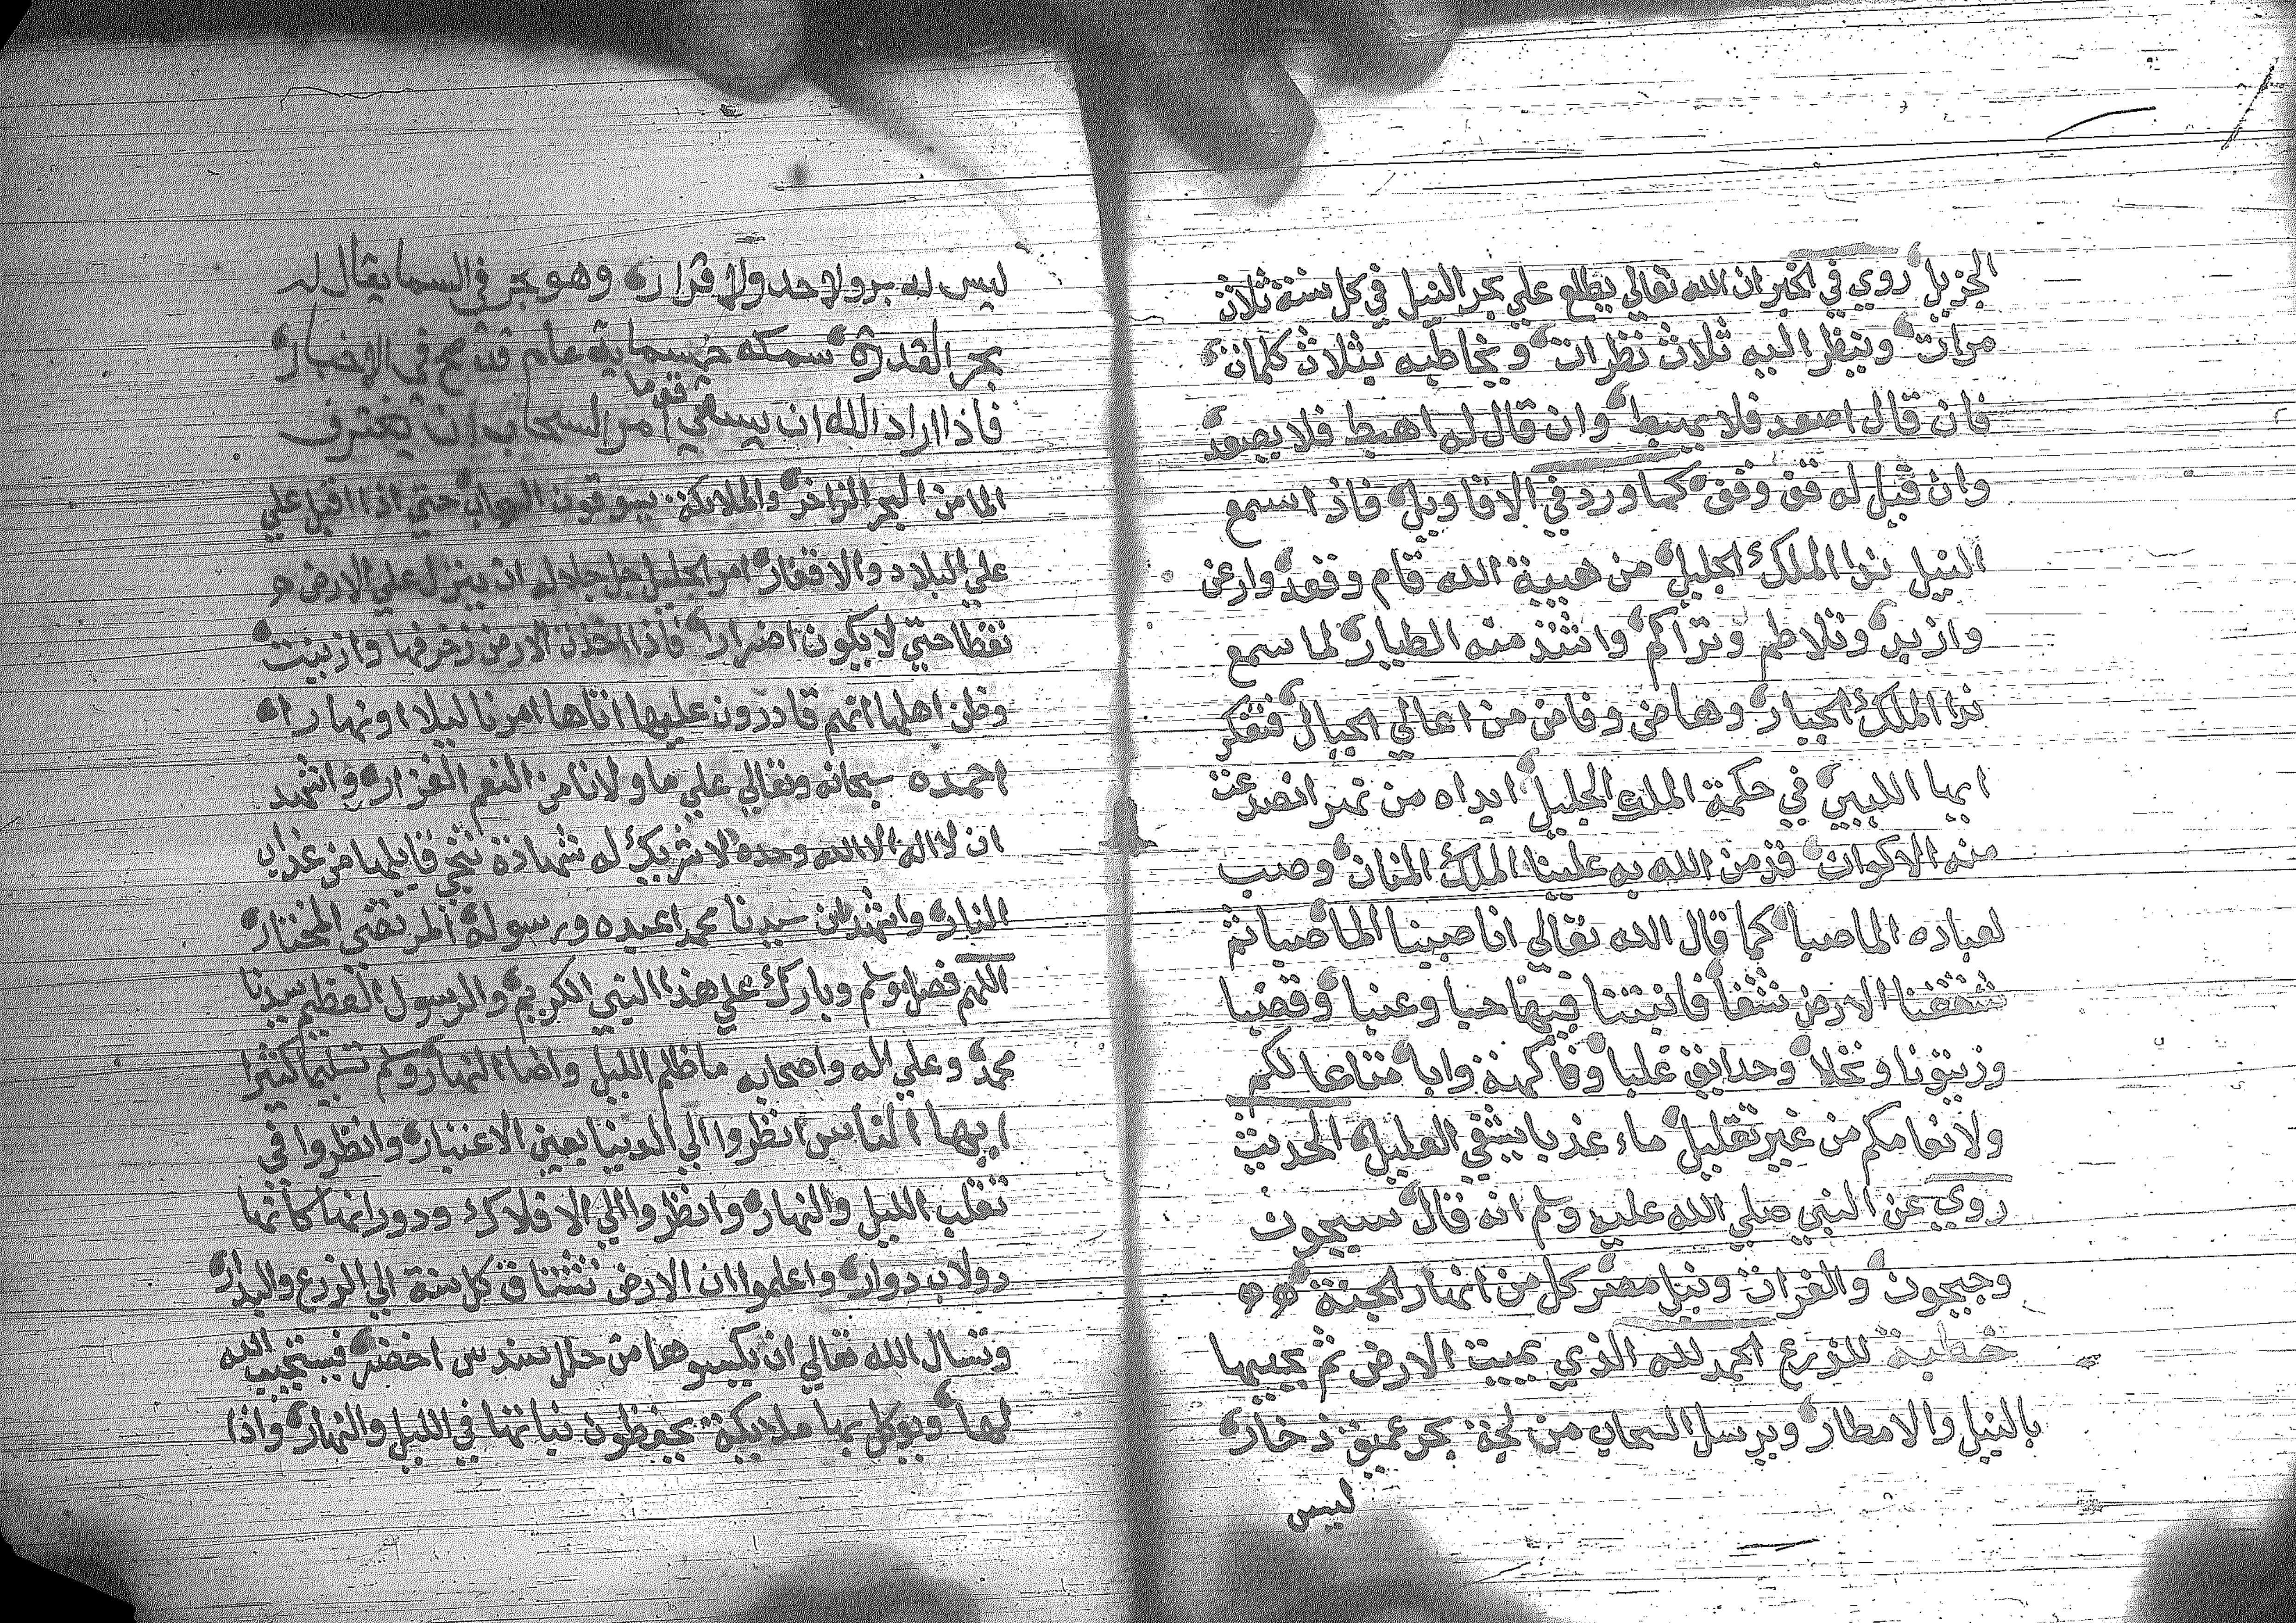 الجزيل روي في الخبر ان الله تعالي يطلع علي بحر النيل في كل سنة ثلاث
مرات وينظر اليه ثلاث نظرات ويخاطبه بثلاث كلمات
فان قال اصعد فلا يهبط وان قال له اهبط فلا يصعد
وان قيل له قف وقف كما ورد في الاقاويل فاذا سمع
النيل ندا الملك الجليل من هيبة الله قام وقعد وارعن
وازبد وتلاطم وتراكم واشتد منه الطيار لما سمع
ندا الملك الجبار وهاض وفاض من اعالي الجبال فتفكر
ايها اللبيب في حكمة الملك الجليل ايداه من نهر انصدعت
منه الاكوان قد من الله به علينا الملك المنان وصب
لعباده الما صبا كما قال الله تعالي انا صببنا الما صبا ثم
شققنا الارض شقا فانبتنا فيها حبا وعنبا وقضبا
وزيتونا ونخلا وحدايق غلبا وفاكهة وابا متاعا لكم
ولانعامكم من غير تقليل ماء عذبا يشفي العليل الحديث
روي عن النبي صلي الله عليه وسلم انه قال سيحون
وجيحون والفرات ونيل مصر كل من انهار الجنة
خطبة للزرع الحمد لله الذي يميت الارض ثم يحييها
بالنيل والامطار ويرسل السحاب من لجة بحر عميق زخار
ليس
ليس له بر ولا حد ولا قرار وهو بحر في السما يقال له
بحر القدرة سمكه خمسماية عام قد صح في الاخبار
فاذا اراد الله ان يسقي قوما امر السحاب ان يغترف
الما من البحر الزاخر والملايكة يسوقون السحاب حتي اذا اقبل علي
علي البلاد والاقفار امر الجليل جل جلاله ان ينزل علي الارض
نقطا حتي لا يكون اضرارا فاذا اخذت الارض زخرفها وازينت
وظن اهلها انهم قادرون عليها اتاها امرنا ليلا او نهارا
احمده سبحانه وتعالي علي ما ولانا من النعم الغزار واشهد
ان لا اله الا الله وحده لا شريك له شهادة تنجي قايلها من عذاب
النار واشهد ان سيدنا محمدا عبده ورسوله المرتضي المختار
اللهم فصل وسلم وبارك علي هذا النبي الكريم والرسول العظيم سيدنا
محمد وعلي اله واصحابه ما ظلم الليل واضا النهار وسلم تسليما كثيرا
ايها الناس انظروا الي الدنيا بعين الاعتبار وانظروا في
تقلب الليل والنهار وانظروا الي الافلاك ودورانها كانها
دولاب دوار واعلموا ان الارض تشتاق كل سنة الي الزرع والبدار
وتسال الله تعالي ان يكسوها من حلل سندس اخضر فيستجيب الله
لها ويوكل بها ملايكة يحفظون نباتها في الليل والنهار واذا